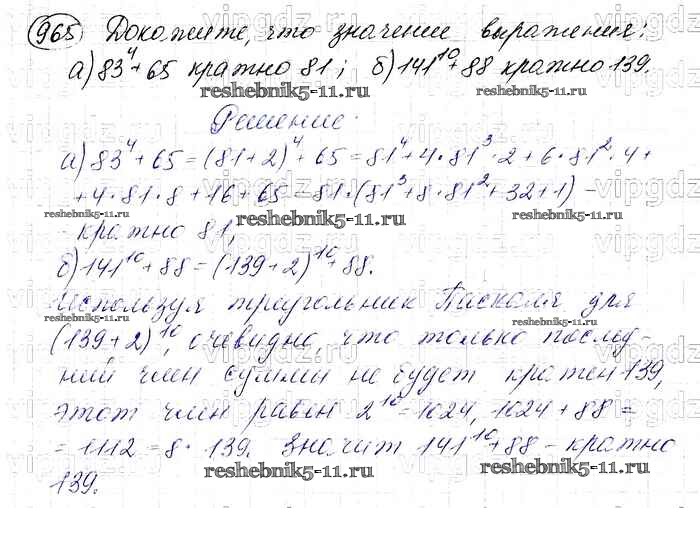 965 Докажите, что значение выражения:
а) 83⁴+65 кратно 81; б) 141¹⁰+88 кратно 139.
reshebnik5-11.ru reshebnik5-11.ru
Решение.
а) 83⁴+65=(81+2)⁴+65=81⁴+4·81³·2+6·81²·4+
+4·81·8+16+65=81·(81³+8·81²+32+1) –
reshebnik5-11.ru reshebnik5-11.ru reshebnik5-11.ru
- кратно 81;
б) 141¹⁰+88=(139+2)¹⁰+88.
Используя треугольник Паскаля для
reshebnik5-11.ru reshebnik5-11.ru
(139+2)¹⁰, очевидно, что только послед-
ний член суммы не будет кратен 139,
этот член равен 2¹⁰=1024, 1024+88=
=1112=8·139. Значит 141¹⁰+88 – кратно
reshebnik5-11.ru reshebnik5-11.ru
139.